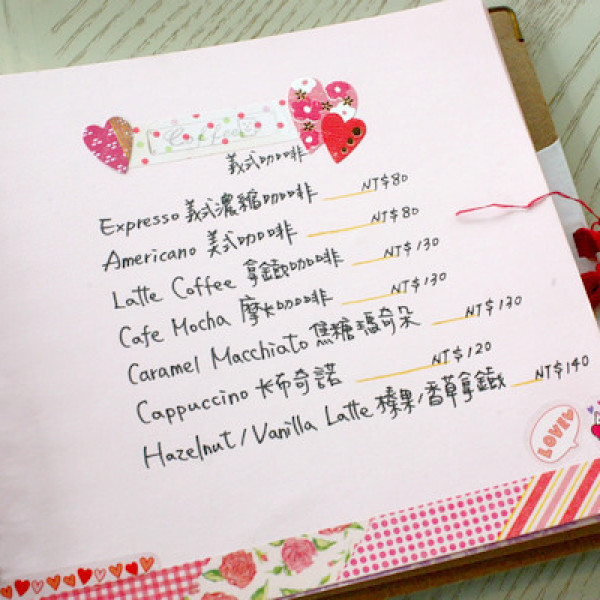 Coffee
義式咖啡
Expresso 義式濃縮咖啡 NT$80
Americano 美式咖啡 NT$80
Latte Coffee 拿鐵咖啡 NT$130
Cafe Mocha 摩卡咖啡 NT$130
Caramel Macchiato 焦糖瑪奇朵 NT$130
Cappuccino 卡布奇諾 NT$120
Hazelnut/Vanilla Latte 榛果/香草拿鐵 NT$140